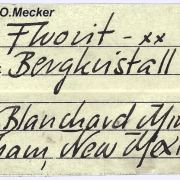 O.Mecker
Fluorit - xx
Bergkristall
Blanchard Min
ham, New Mex